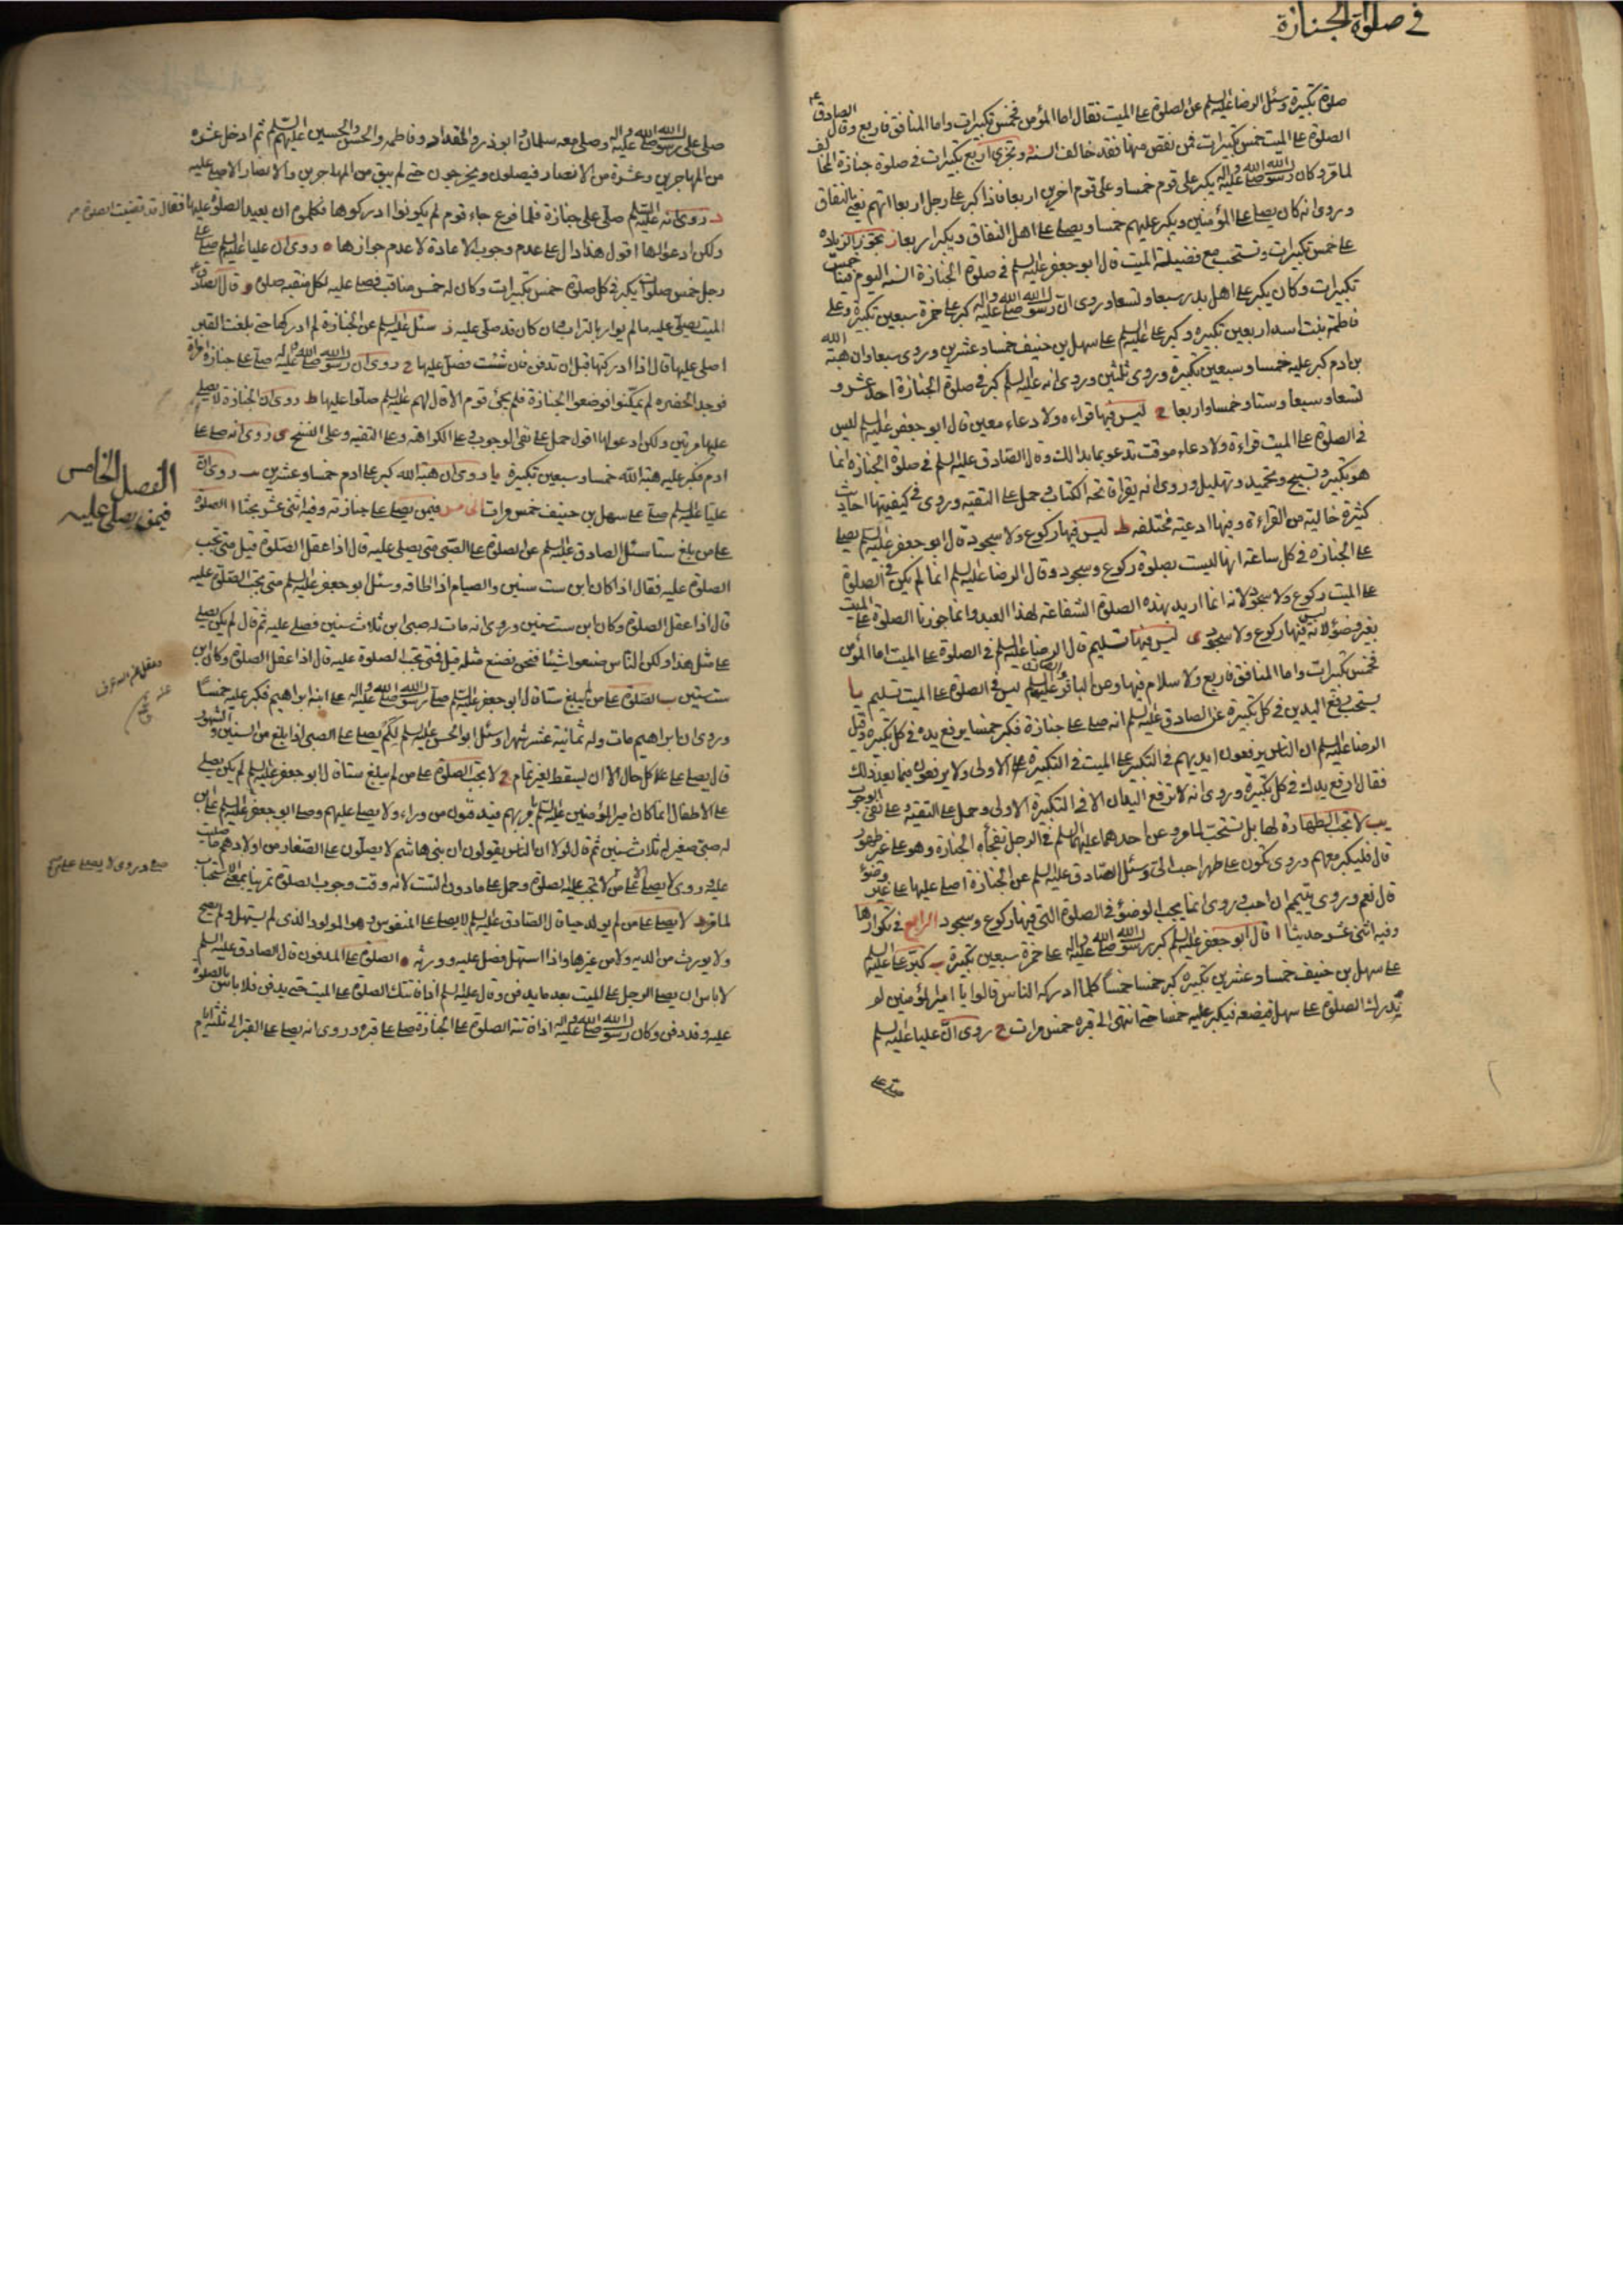 في صلوة الجنازة
صلوة تكبيرة وسئل الرضا عليه السلم عن الصلوة على الميت فقال اما المؤمن فخمس تكبيرات واما المنافق فاربع وقال الصادق ع
الصلوة على الميت خمس تكبيرات فمن نقص منها فقد خالف السنة و وتجزي اربع تكبيرات في صلوة جنازة المخالف
لما مر وكان رسول الله صلى الله عليه واله يكبر على قوم خمسا وعلى قوم اخرين اربعا فاذا كبر على رجل اربعا اتهم يعني بالنفاق
وروي انه كان يصلي على المؤمنين ويكبر عليهم خمسا ويصلي على اهل النفاق ويكبر اربعا ز تجوز الزيادة
على خمس تكبيرات وتستحب مع فضيلة الميت قال ابو جعفر عليه السلم في صلوة الجنازة السنة اليوم فينا خمس
تكبيرات وكان يكبر على اهل بدر سبعا وتسعا وروي ان رسول الله صلى الله عليه واله كبر على حمزة سبعين تكبيرة وعلى
فاطمة بنت اسد اربعين تكبيرة وكبر علي عليه السلم على سهل بن حنيف خمسا وعشرين وروي سبعا وان هبة الله
بن ادم كبر عليه خمسا وسبعين تكبيرة وروي ثلثين وروي انه عليه السلم كبر في صلوة الجنازة احد عشر و
تسعا وسبعا وستا وخمسا واربعا ح ليس فيها قراءة ولا دعاء معين قال ابو جعفر عليه السلم ليس
في الصلوة على الميت قراءة ولا دعاء موقت تدعو بما بدا لك وقال الصادق عليه السلم في صلوة الجنازة انما
هو تكبير وتسبيح وتحميد وتهليل وروي انه يقرا فاتحة الكتاب وحمل على التقية وروي في كيفيتها احاديث
كثيرة خالية من القراءة وفيها ادعية مختلفة ط ليس فيها ركوع ولا سجود قال ابو جعفر عليه السلم يصلى
على الجنازة في كل ساعة انها ليست بصلوة ركوع وسجود وقال الرضا عليه السلم انما لم يكن في الصلوة
على الميت ركوع ولا سجود لانه انما اريد بهذه الصلوة الشفاعة لهذا العبد وانما جوزنا الصلوة على الميت
بغير وضوء لانه ليس فيها ركوع ولا سجود ى ليس فيها تسليم قال الرضا عليه السلم في الصلوة على الميت اما المؤمن
فخمس تكبيرات واما المنافق فاربع ولا سلام فيها وعن الباقر والصادق عليهما السلم ليس في الصلوة على الميت تسليم يا
يستحب رفع اليدين في كل تكبيرة عن الصادق عليه السلم انه صلى على جنازة فكبر خمسا يرفع يده في كل تكبيرة وقيل
الرضا عليه السلم ان الناس يرفعون ايديهم في التكبير على الميت في التكبيرة الاولى ولا يرفعون فيما بعد ذلك
فقال ارفع يدك في كل تكبيرة وروي انه لا ترفع اليدان الا في التكبيرة الاولى وحمل على التقية وعلى نفي الوجوب
يب لا تجب الطهارة لها بل تستحب لما مر وعن احدهما عليهما السلم في الرجل تفجأه الجنازة وهو على غير طهور
قال فليكبر معهم وروي تكون على طهر احب الي وسئل الصادق عليه السلم عن الجنازة اصلي عليها على غير وضوء
قال نعم وروي يتيمم ان احب وروي انما يجب الوضوء في الصلوة التي فيها ركوع وسجود الرابع في تكرارها
وفيه اثنى عشر حديثا ا قال ابو جعفر عليه السلم كبر رسول الله صلى الله عليه واله على حمزة سبعين تكبيرة ب كبر علي عليه السلم
على سهل بن حنيف خمسا وعشرين تكبيرة كبر خمسا خمسا كلما ادركه الناس قالوا يا امير المؤمنين لم
ندرك الصلوة على سهل فيضعه فيكبر عليه خمسا حتى انتهى الى قبره خمس مرات ج روي ان عليا عليه السلم
صلى على
صلى على رسول الله صلى الله عليه واله وصلى معه سلمان وابو ذر والمقداد وفاطمة والحسن والحسين عليهم السلم ثم ادخل عشرة
من المهاجرين وعشرة من الانصار فيصلون ويخرجون حتى لم يبق من المهاجرين والانصار الا صلى عليه
د روي انه عليه السلم صلى على جنازة فلما فرغ جاء قوم لم يكونوا ادركوها فكلموه ان يعيد الصلوة عليها فقال قد قضيت الصلوة
ولكن ادعوا لها اقول هذا دال على عدم وجوب الاعادة لا عدم جوازها ه روي ان عليا عليه السلم صلى على
رجل خمس صلوات يكبر في كل صلوة خمس تكبيرات وكان له خمس مناقب فصلى عليه لكل منقبة صلوة و قال الصادق ع
الميت يصلى عليه ما لم يوار بالتراب وان كان قد صلي عليه ز سئل عليه السلم عن الجنازة لم ادركها حتى بلغت القبر
اصلي عليها قال اذا ادركتها قبل ان تدفن فان شئت فصل عليها ح روي ان رسول الله صلى الله عليه واله صلى على جنازة امراة
فوجد الحفرة لم يمكنوا فوضعوا الجنازة فلم يجئ قوم الا قال لهم عليه السلم صلوا عليها ط روي ان الجنازة لا يصلى
عليها مرتين ولكن ادعوا لها اقول حمل على نفي الوجوب وعلى الكراهة وعلى التقية وعلى النسخ ى روي انه صلى على
ادم فكبر عليه هبة الله خمسا وسبعين تكبيرة يا روي ان هبة الله كبر على ادم خمسا وعشرين يب روي ان
عليا عليه السلم صلى على سهل بن حنيف خمس مرات الخامس فيمن يصلى على جنازته وفيه اثنى عشر بحثا ا الصلوة
على من بلغ ستا سئل الصادق عليه السلم عن الصلوة على الصبي متى يصلى عليه قال اذا عقل الصلوة قيل متى تجب
الصلوة عليه فقال اذا كان ابن ست سنين والصيام اذا اطاقه وسئل ابو جعفر عليه السلم متى تجب الصلوة عليه
قال اذا عقل الصلوة وكان ابن ست سنين وروي انه مات له صبي ابن ثلاث سنين فصلى عليه ثم قال لم يكن يصلى
على مثل هذا ولكن الناس صنعوا شيئا فنحن نصنع مثله قيل فمتى تجب الصلوة عليه قال اذا عقل الصلوة وكان ابن
ست سنين ب الصلوة على من لم يبلغ ستا قال ابو جعفر عليه السلم صلى رسول الله صلى الله عليه واله على ابنه ابراهيم فكبر عليه خمسا
وروي ان ابراهيم مات وله ثمانية عشر شهرا وسئل ابو الحسن عليه السلم لكم يصلى على الصبي اذا بلغ من السنين والشهور
قال يصلى عليه على كل حال الا ان يسقط لغير تمام ج لا تجب الصلوة على من لم يبلغ ستا قال ابو جعفر عليه السلم لم يكن يصلى
على الاطفال انما كان امير المؤمنين عليه السلم يامر بهم فيدفنون من وراء ولا يصلي عليهم وصلى ابو جعفر عليه السلم على ابن
له صبي صغير له ثلاث سنين ثم قال لولا ان الناس يقولون ان بني هاشم لا يصلون على الصغار من اولادهم ما صليت
عليه وروي لا يصلى الا على من تجب عليه الصلوة وحمل على ما دون الست لانه وقت وجوب الصلوة تمرينا بمعنى الاستحباب
لما مر د لا يصلى على من لم يولد حيا قال الصادق عليه السلم لا يصلى على المنفوس وهو المولود الذي لم يستهل ولم يصح
ولا يورث من الدية ولا من غيرها واذا استهل فصل عليه وورثه ه الصلوة على المدفون قال الصادق عليه السلم
لا باس ان يصلي الرجل على الميت بعد ما يدفن وقال عليه السلم اذا فاتتك الصلوة على الميت حتى يدفن فلا باس بالصلوة
عليه وقد دفن وكان رسول الله صلى الله عليه واله اذا فاتته الصلوة على الجنازة صلى على قبره وروي انه يصلى على القبر الى ثلثة ايام
الفصل الخامس
فيمن يصلى عليه